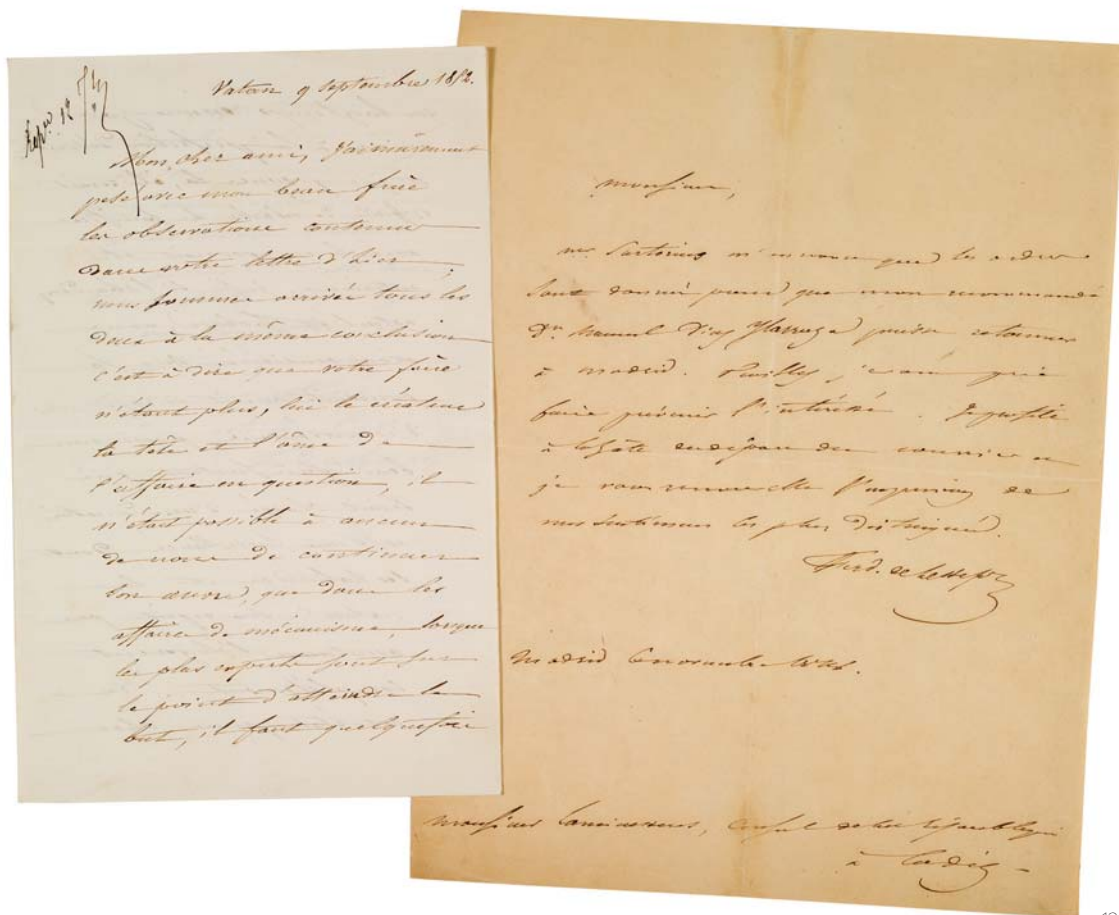 Vatan 9 septembre 1852.
Rép. 12
Mon cher ami, J'ai mûrement
pesé avec mon beau frère
les observations contenues
dans votre lettre d'hier ;
nous sommes arrivés tous les
deux à la même conclusion
c'est à dire que votre frère
n'étant plus, lui le créateur
la tête et l'âme de
l'affaire en question, il
n'était possible à aucun
de nous de continuer
son œuvre, que dans les
affaires de mécanisme, lorsque
les plus experts sont sur
le point d'atteindre le
but, il faut quelquefois
monsieur,
mr. Sartorius m'annonce que les ordres
sont donnés pour que mon recommandé
Dn. Manuel puisse retourner
à madrid. Veuillez, je vous prie
faire prévenir l'intéressé. Je profite
à la hâte du départ du courrier et
je vous renouvelle l'expression de
mes sentimens les plus distingués.
Ferd. de Lesseps
Madrid novembre
monsieur, consul de la République
à Cadiz